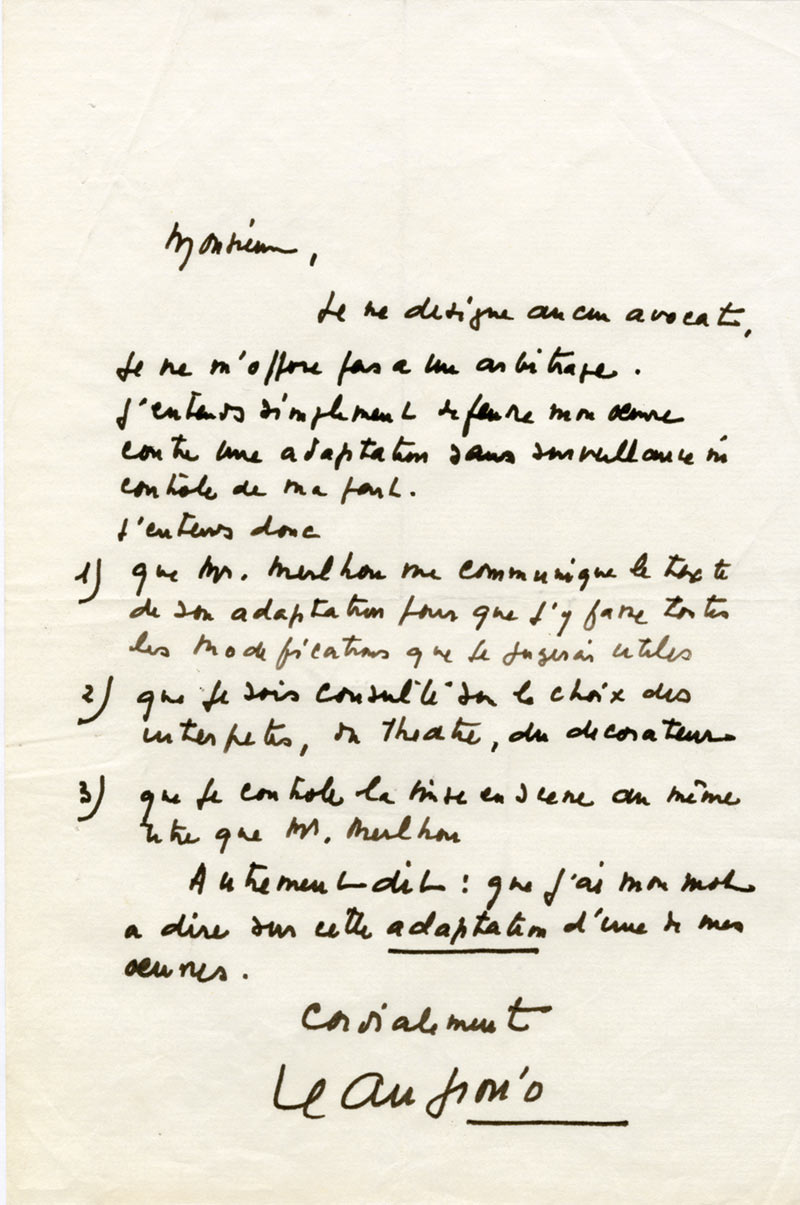 Monsieur,
Je ne designe aucun avocat,
Je ne m'offre pas a un arbitrage.
J'entends simplement defendre mon œuvre
contre une adaptation sans surveillance ni
contrôle de ma part.
J'entends donc
1) que Mr. Merlhou me communique le texte
de son adaptation pour que j'y fasse toutes
les modifications que je jugerai utiles
2) que je sois consulté sur le choix des
interpetes, du theatre, du decorateur
3) que je controle la mise en scene au même
titre que Mr. Merlhou
Autrement dit : que j'ai mon mot
a dire sur cette adaptation d'une de mes
œuvres.
Cordialement
Jean Giono